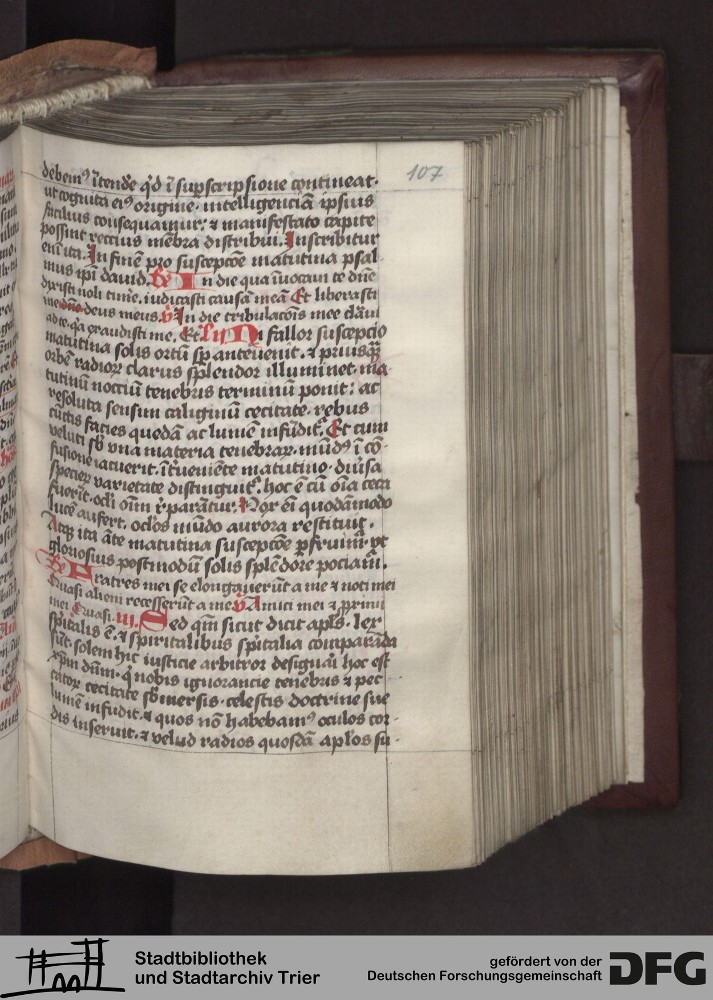 107
debem⁹ ĩtende q̇d ĩ suꝑscripsione contineat·
ut cognita ei⁹ origine· intelligenciā ipsius
facilius consequamur: ⁊ manifestato capite
possint reccius mēbra distribui. Inscribitur
eni ita. In finē pro suscepcōe matutina psal-
mus ipi david. In die qua ĩuocaui te dn̄e
dixisti noli timē. iudicasti causā meā Et liberasti
me deus meus. ꝟ In die tribulacōis mee clāui
ad te. q̇a exaudisti me. Et Ni fallor suscepcio
matutina solis ortū sꝑ anteuenit. ⁊ priusq̄ꝫ
orbē radioꝝ clarus splendor illuminet. ma-
tutinū noctiū tenebris terminū ponit: ac
resoluta sensim caliginū cecitate· rebus
cūctis facies quedā ac lumē infūdit᷑. Et cum
veluti sb̄ vna materia tenebraꝝ· mūd⁹ ĩ cō-
fusione iacuerit. ĩt̾ueniēte matutino· diu̾sa
specieꝝ varietate distinguit᷑. hoc ē cū oīa ceca
fuerīt. ocl̓i oīm r̓parātur. Nox eī quodāmodo
lucē aufert. ocl̓os mūdo aurora restituit.
Atqꝫ ita āte matutina suscepcōe ꝑfruim᷑. vt
gloriosius postmodū solis splēdore pociam̄.
Fratres mei se elongauerūt a me ⁊ noti mei
Quasi alieni recesserūt a me ꝟ Amici mei ⁊ primi
mei Quasi. iij. Sed qm̄ sicut dicit apl̓s. lex
sp̄italis ē. ⁊ spiritalibus sp̄italia comparāda
sūt. solem hic iusticie arbitror designaī hoc est
xp̄m dūm. q̇ nobis ignorancie tenebris ⁊ pec
catoꝝ cecitate sb̄mersis. celestis doctrine sue
lumē infudit. ⁊ quos nō habebam⁹ oculos cor-
dis inseruit. ⁊ velud radios quosdā apl̓os su-
Stadtbibliothek
und Stadtarchiv Trier
gefördert von der
Deutschen Forschungsgemeinschaft
DFG